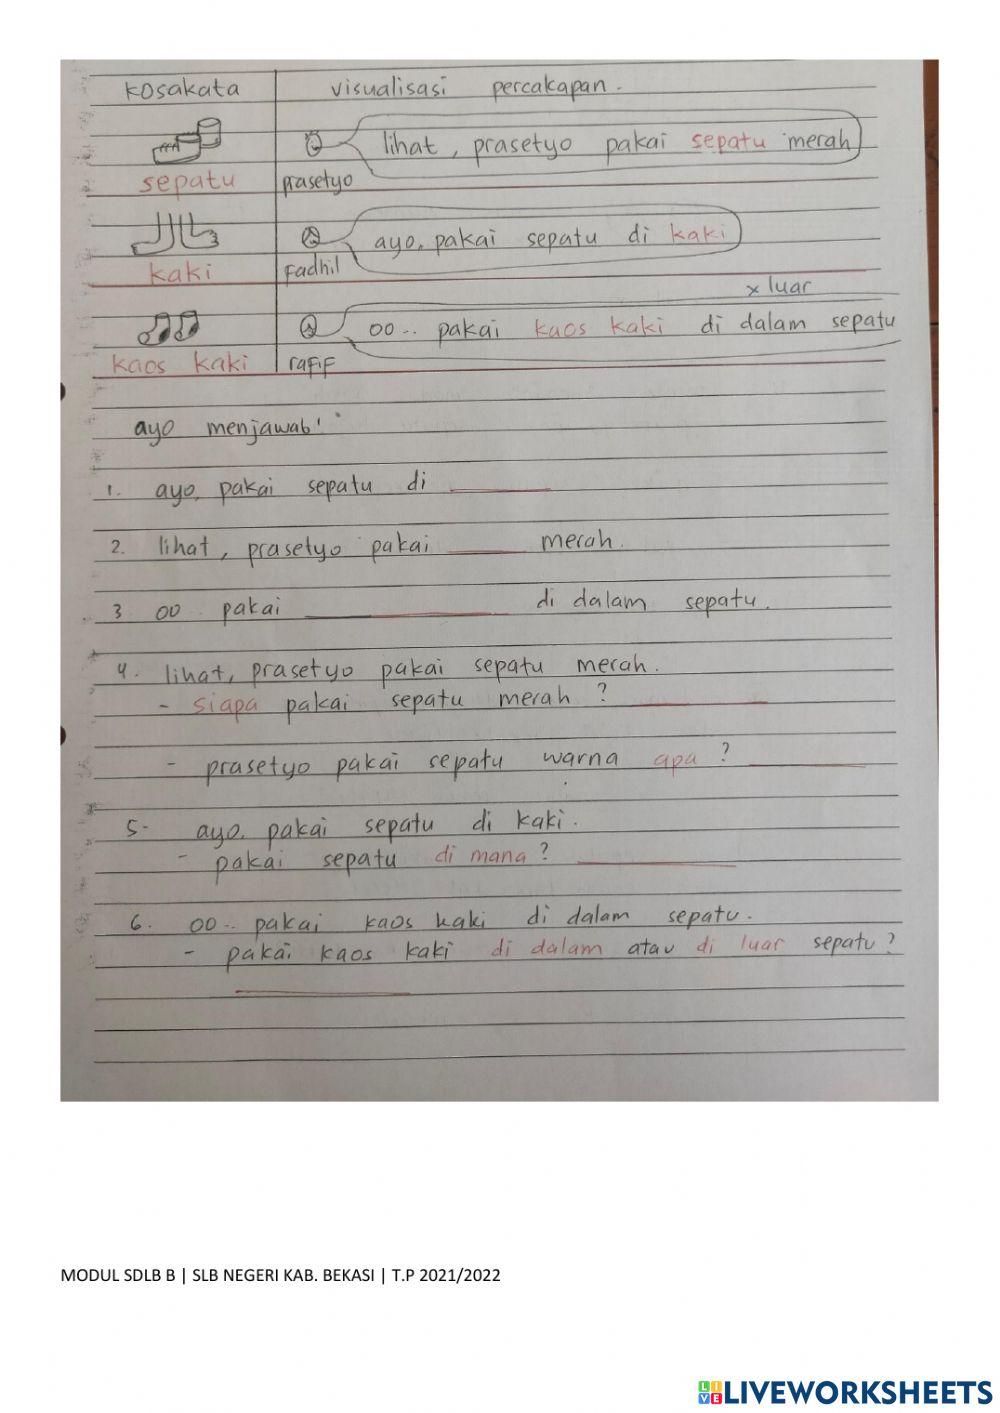 kosakata visualisasi percakapan.
lihat, prasetyo pakai sepatu merah
sepatu prasetyo
ayo, pakai sepatu di kaki
kaki fadhil
x luar
oo.. pakai kaos kaki di dalam sepatu
kaos kaki rafif
ayo menjawab!
1. ayo, pakai sepatu di ______
2. lihat, prasetyo pakai ______ merah.
3. oo.. pakai ______ di dalam sepatu.
4. lihat, prasetyo pakai sepatu merah.
- siapa pakai sepatu merah? ______
- prasetyo pakai sepatu warna apa? ______
5. ayo, pakai sepatu di kaki.
- pakai sepatu di mana? ______
6. oo.. pakai kaos kaki di dalam sepatu.
- pakai kaos kaki di dalam atau di luar sepatu?
______
MODUL SDLB B | SLB NEGERI KAB. BEKASI | T.P 2021/2022
LIVE LIVEWORKSHEETS